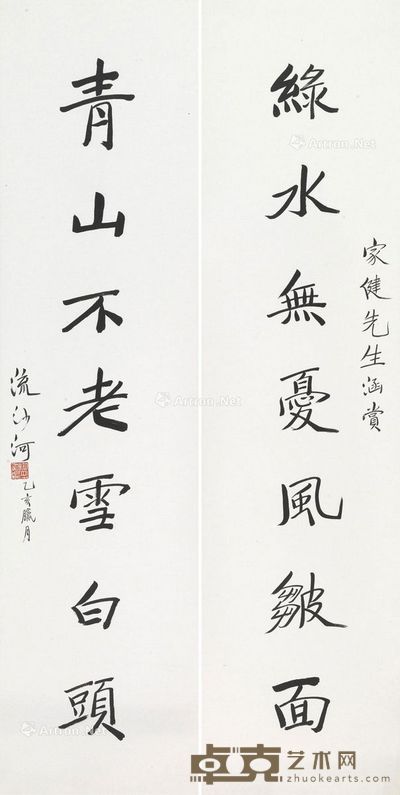 家健先生涵賞
綠水無憂風皺面
青山不老雪白頭
流沙河
乙亥臘月
Artron.Net
Artron.Net
Artron.Net
Artron.Net
卓克艺术网
www.zhuokearts.com